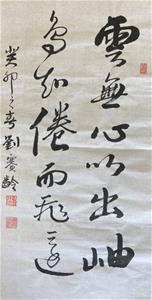 雲無心以出岫
鳥知倦而飛還
癸卯之春劉賽齡